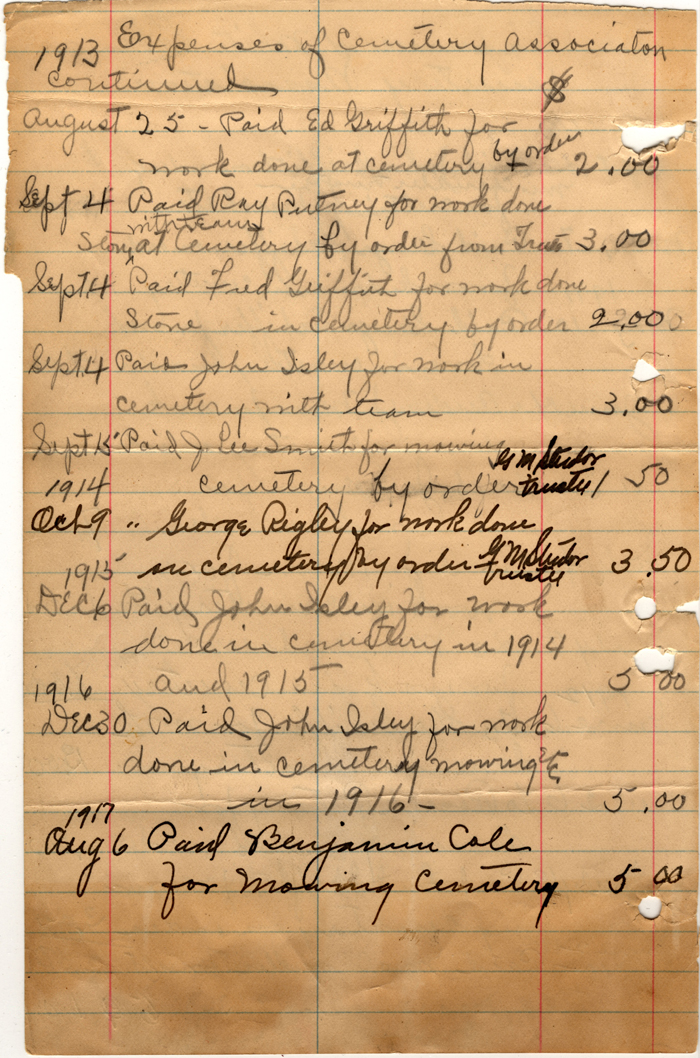 1913 Expenses of Cemetery Associaton
continued $
August 25 - Paid Ed Griffith for
work done at cemetery by order 2.00
Sept 4 Paid Ray Putney for work done
with team
Stone at Cemetery by order from Trus 3.00
Sept 4 Paid Fred Griffith for work done
Stone in cemetery by order 2.00
Sept 4 Paid John Isley for work in
cemetery with team 3.00
Sept 15 Paid J. Lee Smith for mowing
cemetery by order G M trustee 1 50
1914
Oct 9 " George Rigley for work done
on cemetery by order G M trustee 3.50
1915
Dec 6 Paid John Isley for work
done in cemetery in 1914
and 1915 5 00
1916
Dec 30 Paid John Isley for work
done in cemetery mowing etc
in 1916 - 5.00
1917
Aug 6 Paid Benjamin Cole
for Mowing Cemetery 5 00